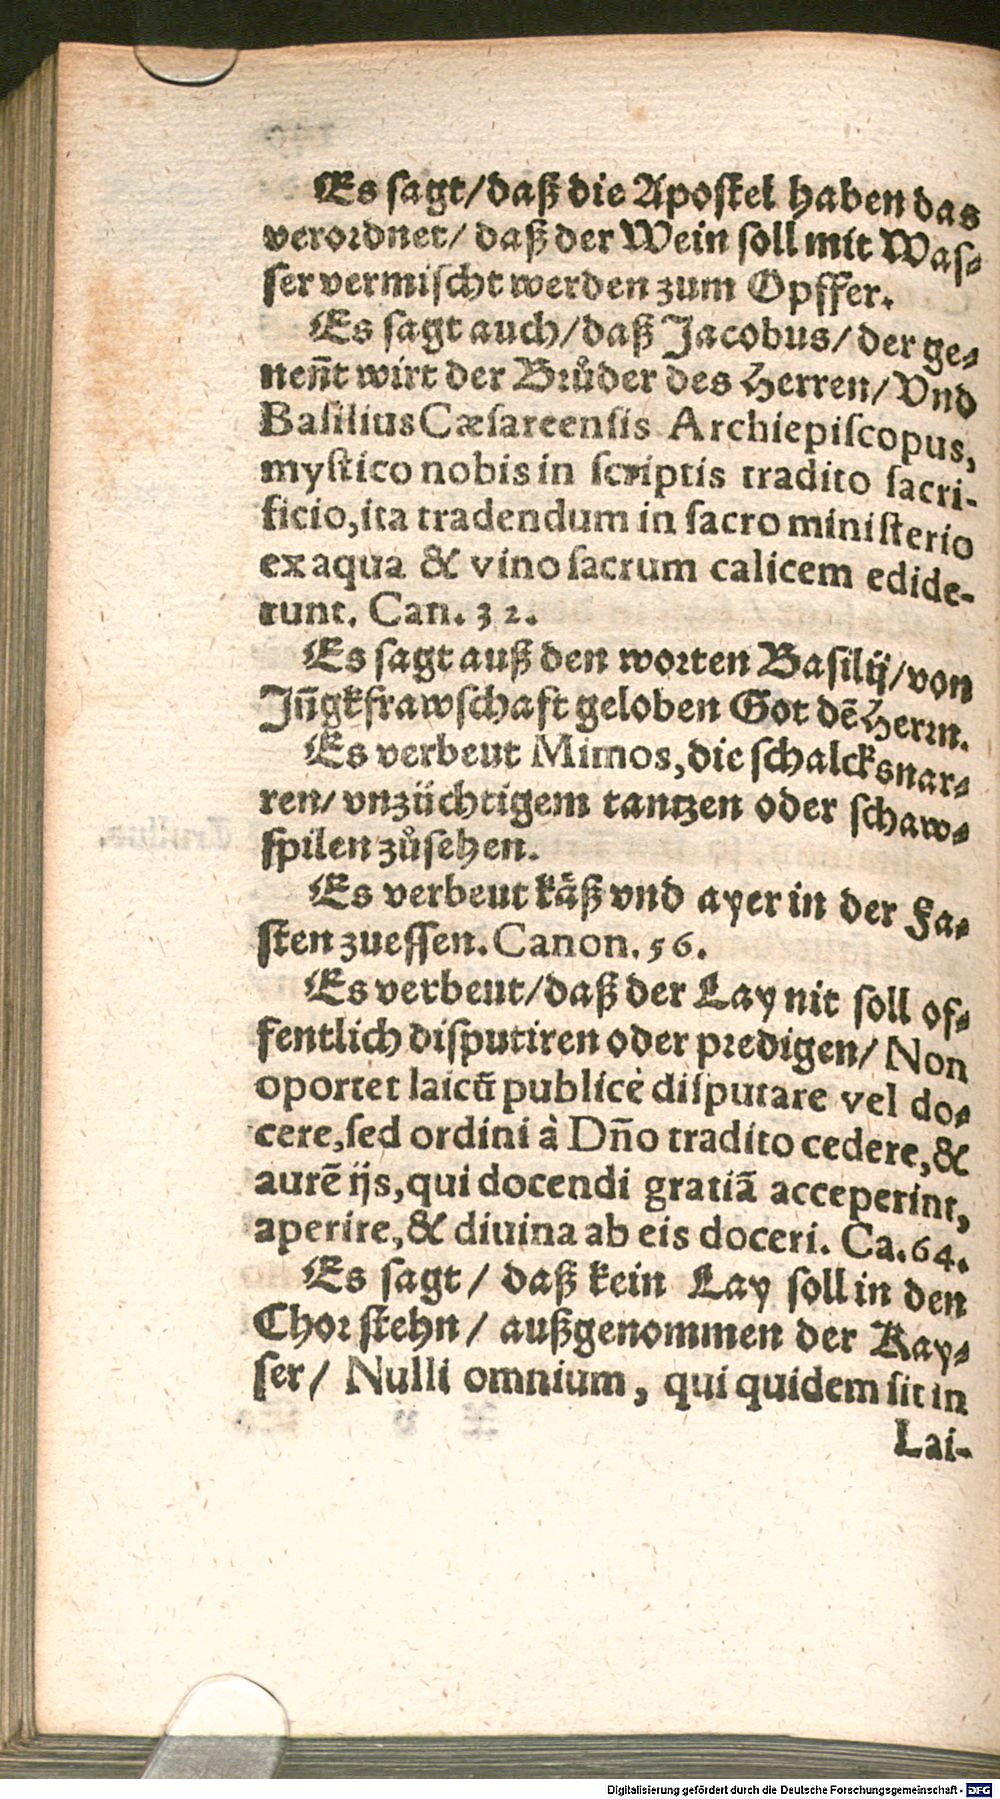 Es sagt/daß die Apostel haben das
verordnet/ daß der Wein soll mit Was-
ser vermischt werden zum Opffer.
Es sagt auch/daß Jacobus/ der ge-
neñt wirt der Brůder des Herren/ Vnd
Basilius Cæsareensis Archiepiscopus,
mystico nobis in scriptis tradito sacri-
ficio, ita tradendum in sacro ministerio
ex aqua & vino sacrum calicem edide-
runt. Can. 32.
Es sagt auß den worten Basilij/ von
Jñgkfrawschaft geloben Got dẽ Herrn.
Es verbeut Mimos, die schalcksnar-
ren/ vnzüchtigem tantzen oder schaw-
spilen zůsehen.
Es verbeut kåß vnd ayer in der Fa-
sten zuessen. Canon. 56.
Es verbeut/daß der Lay nit soll of-
fentlich disputiren oder predigen/ Non
oportet laicũ publicè disputare vel do-
cere, sed ordini à Dño tradito cedere, &
aurẽ ijs, qui docendi gratiã acceperint,
aperire, & diuina ab eis doceri. Ca. 64.
Es sagt/ daß kein Lay soll in den
Chor stehn/ außgenommen der Kay-
ser/ Nulli omnium, qui quidem sit in
Lai-
Digitalisierung gefördert durch die Deutsche Forschungsgemeinschaft - DFG